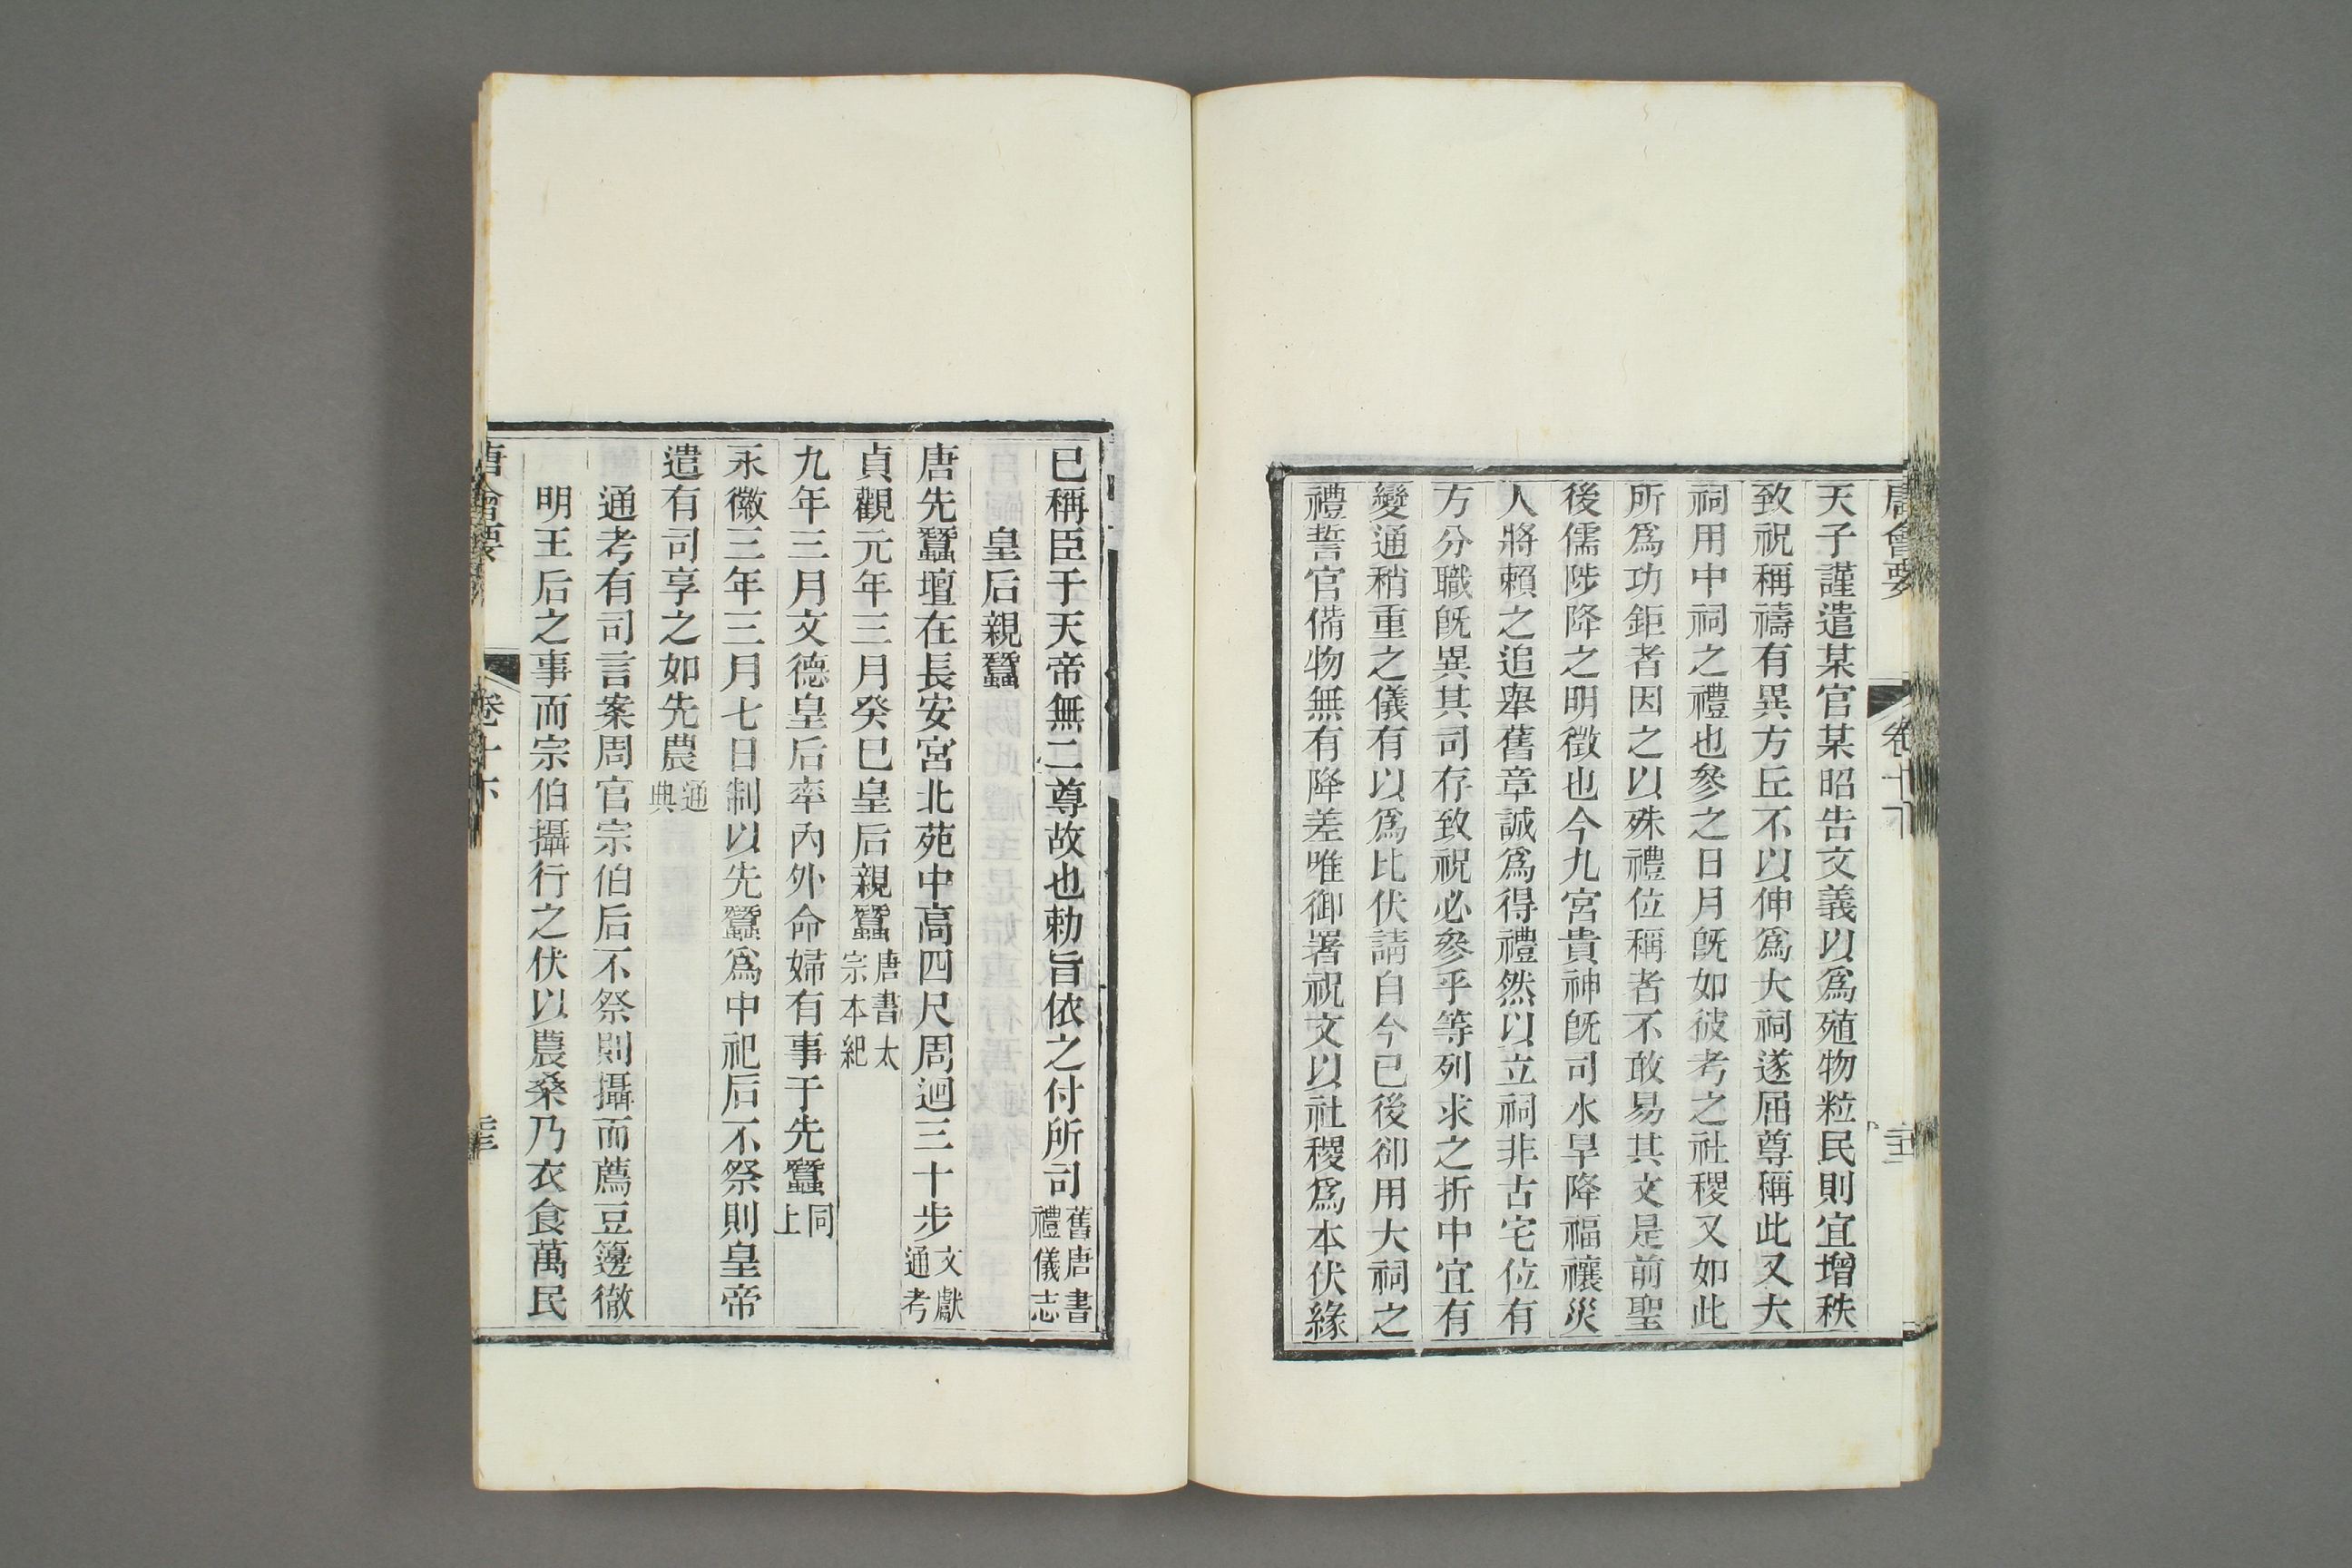 唐會要 卷十
天子謹遣某官某昭告文義以爲殖物粒民則宜增秩
致祝稱禱有異方丘不以伸爲大祠遂屈尊稱此又大
祠用中祠之禮也參之日月旣如彼考之社稷又如此
所爲功鉅者因之以殊禮位稱者不敢易其文是前聖
後儒陟降之明徵也今九宮貴神旣司水旱降福禳災
人將賴之追舉舊章誠爲得禮然以立祠非古宅位有
方分職旣異其司存致祝必參乎等列求之折中宜有
變通稍重之儀有以爲比伏請自今已後卻用大祠之
禮誓官備物無有降差唯御署祝文以社稷爲本伏緣
已稱臣于天帝無二尊故也勅旨依之付所司舊唐書禮儀志
皇后親蠶
唐先蠶壇在長安宮北苑中高四尺周迴三十步文獻通考
貞觀元年三月癸巳皇后親蠶唐書太宗本紀
九年三月文德皇后率內外命婦有事于先蠶同上
永徽三年三月七日制以先蠶爲中祀后不祭則皇帝
遣有司享之如先農通典
通考有司言案周官宗伯后不祭則攝而薦豆籩徹
明王后之事而宗伯攝行之伏以農桑乃衣食萬民
唐會要 卷十六